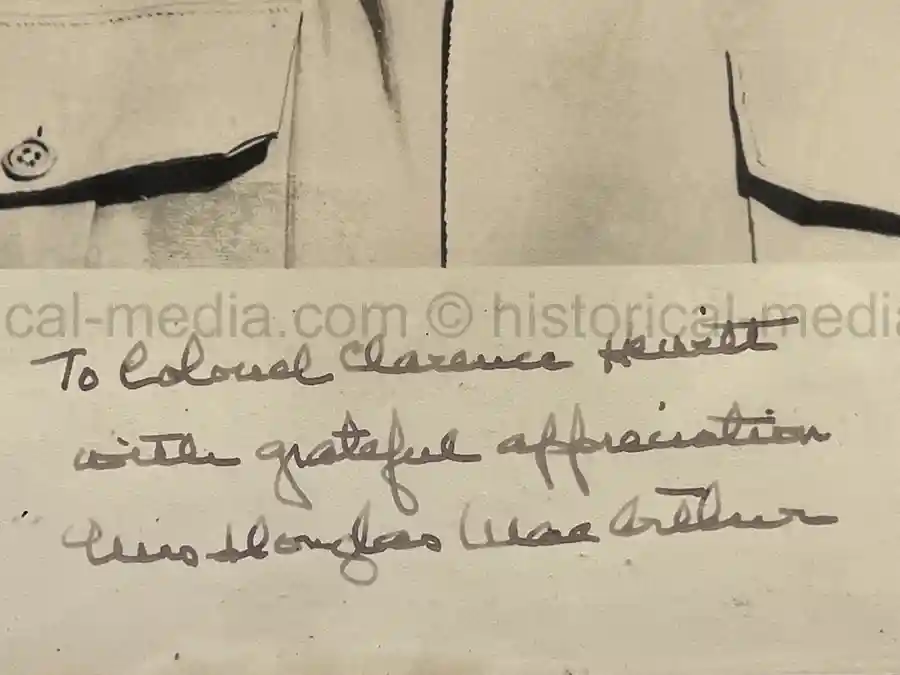 cal-media.com © historical-media
To Colonel Clarence Hewitt
with grateful appreciation
Mrs Douglas MacArthur